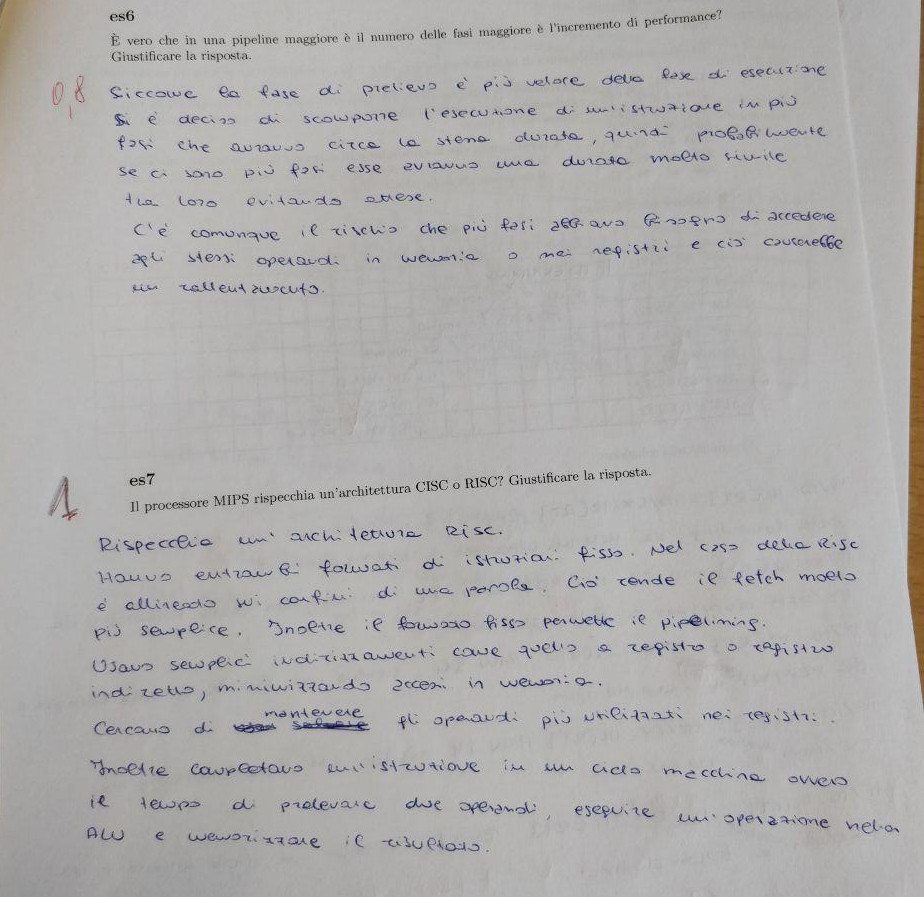 es6
È vero che in una pipeline maggiore è il numero delle fasi maggiore è l'incremento di performance?
Giustificare la risposta.
0,8
Siccome la fase di prelievo è più veloce della fase di esecuzione
si è deciso di scomporre l'esecuzione di un'istruzione in più
fasi che avranno circa la stessa durata, quindi probabilmente
se ci sono più fasi esse avranno una durata molto simile
tra loro evitando attese.
C'è comunque il rischio che più fasi abbiano bisogno di accedere
agli stessi operandi in memoria o nei registri e ciò causerebbe
un rallentamento.
1
es7
Il processore MIPS rispecchia un'architettura CISC o RISC? Giustificare la risposta.
Rispecchia un'architettura RISC.
Hanno entrambi formati di istruzioni fisso. Nel caso della RISC
è allineato sui confini di una parola. Ciò rende il fetch molto
più semplice. Inoltre il formato fisso permette il pipelining.
Usano semplici indirizzamenti come quello a registro o registro
indiretto, minimizzando accessi in memoria.
Cercano di mantenere gli operandi più utilizzati nei registri.
Inoltre completano un'istruzione in un ciclo macchina ovvero
il tempo di prelevare due operandi, eseguire un'operazione nella
ALU e memorizzare il risultato.